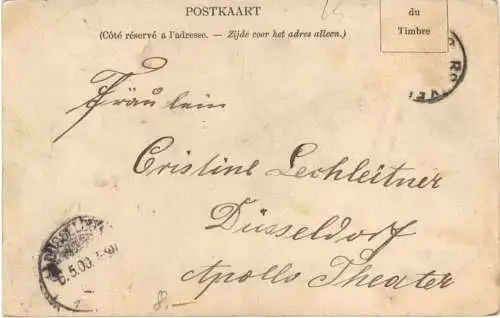 POSTKAART
(Côté réservé a l'adresse. — Zijde voor het adres alleen.)
du
Timbre
Fräulein
Cristine Lechleitner
Düsseldorf
Apollo Theater
8.—